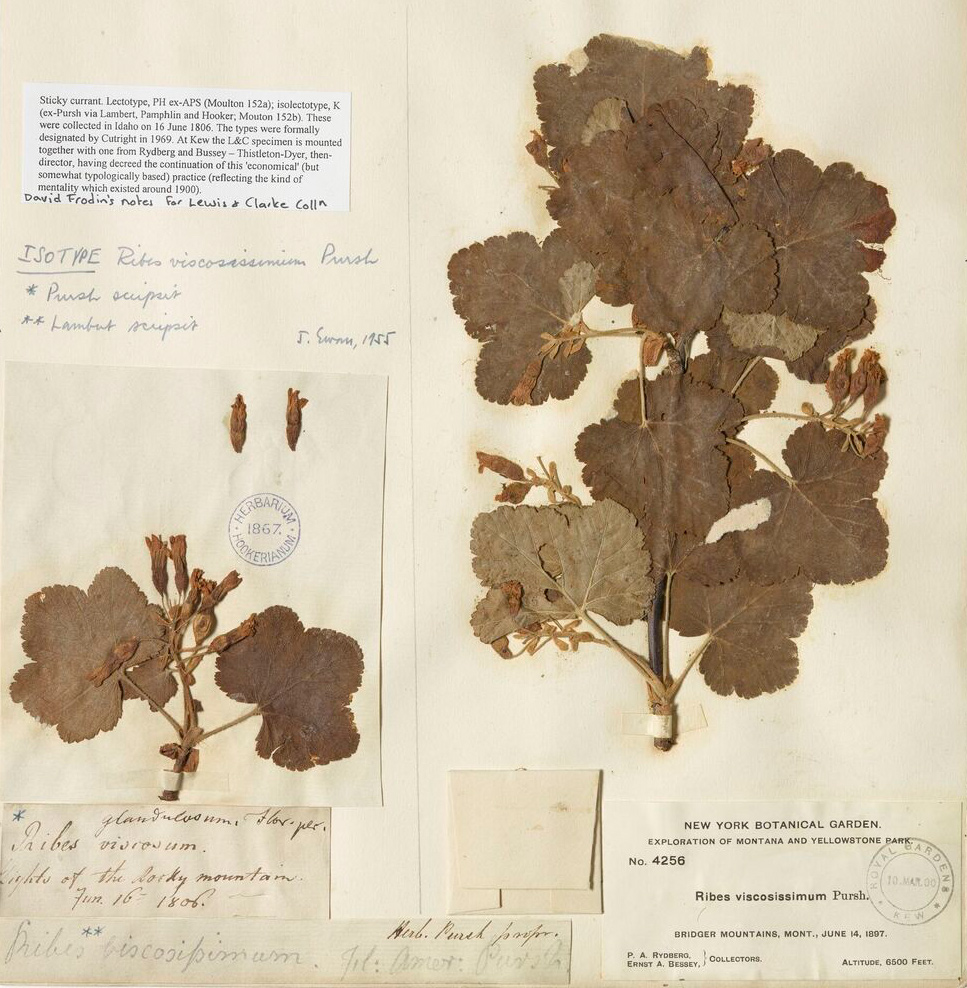 Sticky currant. Lectotype, PH ex-APS (Moulton 152a); isolectotype, K
(ex-Pursh via Lambert, Pamphlin and Hooker; Mouton 152b). These
were collected in Idaho on 16 June 1806. The types were formally
designated by Cutright in 1969. At Kew the L&C specimen is mounted
together with one from Rydberg and Bussey – Thistleton-Dyer, then-
director, having decreed the continuation of this 'economical' (but
somewhat typologically based) practice (reflecting the kind of
mentality which existed around 1900).
David Frodin's notes for Lewis & Clarke Colln
ISOTYPE Ribes viscosissimum Pursh
* Pursh scripsit
** Lambert scripsit
J. Ewan, 1955
HERBARIUM
1867.
HOOKERIANUM
* glandulosum, Flor. per.
Ribes viscosum.
of the Rocky mountain.
Jun. 16th 1806.
Herb. Pursh propr.
**
Ribes viscosissimum. Fl: Amer: Pursh
NEW YORK BOTANICAL GARDEN.
EXPLORATION OF MONTANA AND YELLOWSTONE PARK.
No. 4256
Ribes viscosissimum Pursh.
BRIDGER MOUNTAINS, MONT., JUNE 14, 1897.
P. A. RYDBERG,
ERNST A. BESSEY, } COLLECTORS.
ALTITUDE, 6500 FEET.
ROYAL GARDENS
10.MAR.00
KEW